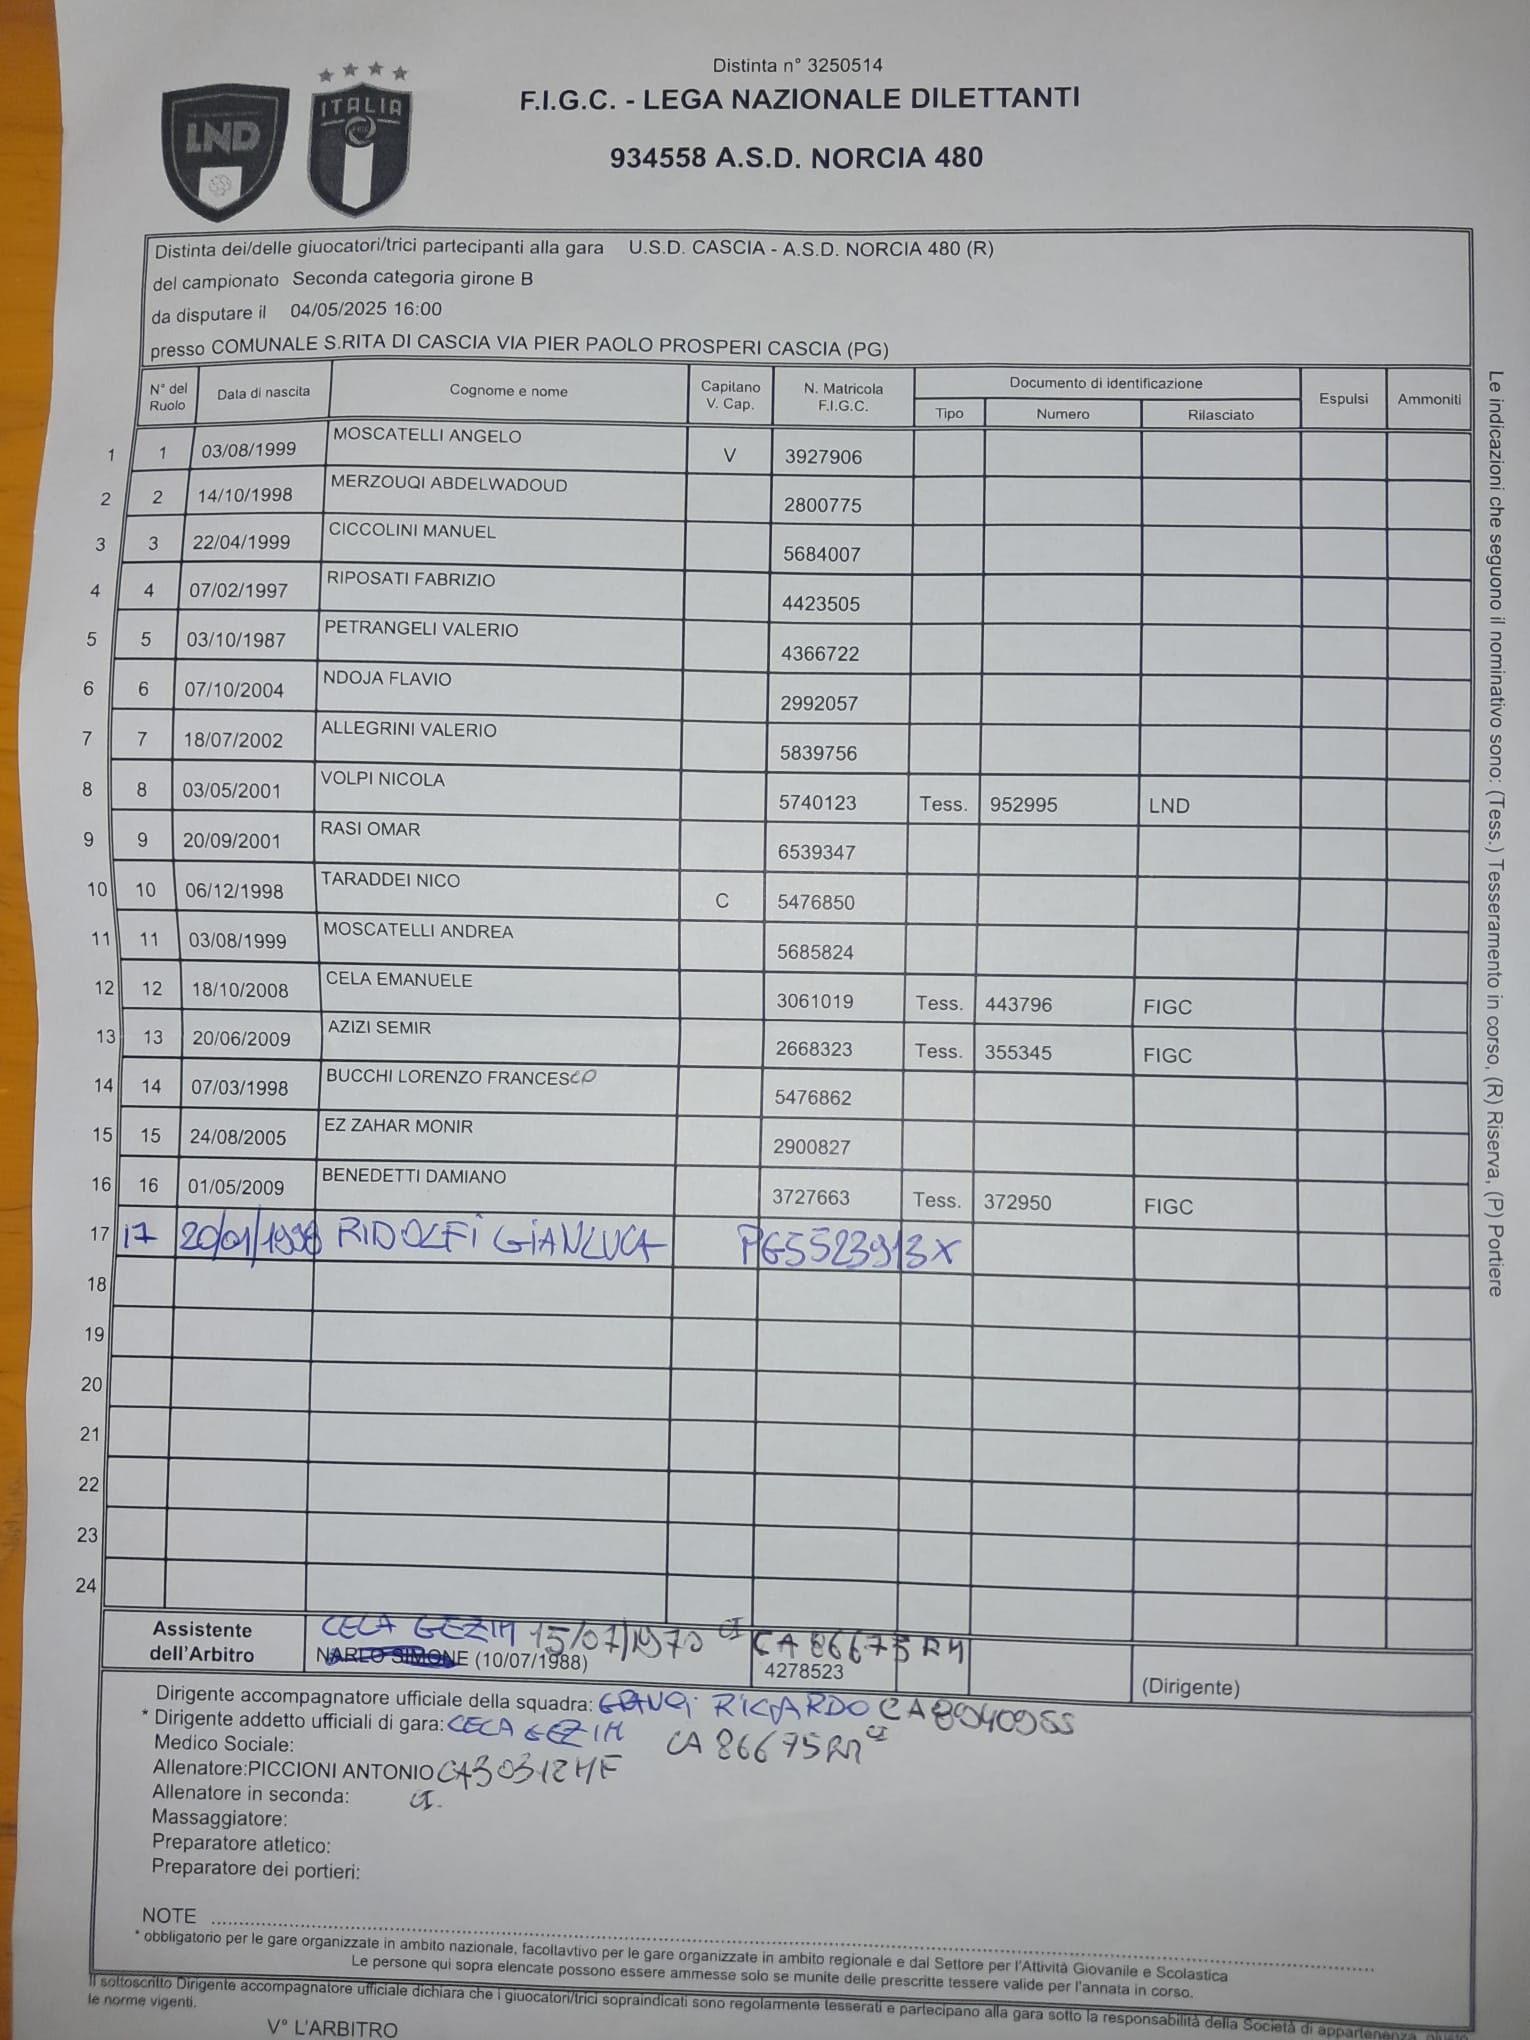 Distinta n° 3250514
F.I.G.C. - LEGA NAZIONALE DILETTANTI
934558 A.S.D. NORCIA 480
LND
ITALIA
Distinta dei/delle giuocatori/trici partecipanti alla gara U.S.D. CASCIA - A.S.D. NORCIA 480 (R)
del campionato Seconda categoria girone B
da disputare il 04/05/2025 16:00
presso COMUNALE S.RITA DI CASCIA VIA PIER PAOLO PROSPERI CASCIA (PG)
N° del Ruolo Data di nascita Cognome e nome Capitano V. Cap. N. Matricola F.I.G.C. Documento di identificazione Espulsi Ammoniti
Tipo Numero Rilasciato
1 1 03/08/1999 MOSCATELLI ANGELO V 3927906
2 2 14/10/1998 MERZOUQI ABDELWADOUD 2800775
3 3 22/04/1999 CICCOLINI MANUEL 5684007
4 4 07/02/1997 RIPOSATI FABRIZIO 4423505
5 5 03/10/1987 PETRANGELI VALERIO 4366722
6 6 07/10/2004 NDOJA FLAVIO 2992057
7 7 18/07/2002 ALLEGRINI VALERIO 5839756
8 8 03/05/2001 VOLPI NICOLA 5740123 Tess. 952995 LND
9 9 20/09/2001 RASI OMAR 6539347
10 10 06/12/1998 TARADDEI NICO C 5476850
11 11 03/08/1999 MOSCATELLI ANDREA 5685824
12 12 18/10/2008 CELA EMANUELE 3061019 Tess. 443796 FIGC
13 13 20/06/2009 AZIZI SEMIR 2668323 Tess. 355345 FIGC
14 14 07/03/1998 BUCCHI LORENZO FRANCESCO 5476862
15 15 24/08/2005 EZ ZAHAR MONIR 2900827
16 16 01/05/2009 BENEDETTI DAMIANO 3727663 Tess. 372950 FIGC
17 17 20/01/1998 RIDOLFI GIANLUCA PG5523913X
18
19
20
21
22
23
24
Assistente dell'Arbitro CELA GEZIM 15/07/1970 CI CA86675RM
NARLO SIMONE (10/07/1988) 4278523 (Dirigente)
Dirigente accompagnatore ufficiale della squadra: RICCARDO
* Dirigente addetto ufficiali di gara: CELA GEZIM CA 86675RM CI
Medico Sociale:
Allenatore:PICCIONI ANTONIO CA30312MF
Allenatore in seconda: CI.
Massaggiatore:
Preparatore atletico:
Preparatore dei portieri:
NOTE
* obbligatorio per le gare organizzate in ambito nazionale, facoltavtivo per le gare organizzate in ambito regionale e dal Settore per l'Attività Giovanile e Scolastica
Le persone qui sopra elencate possono essere ammesse solo se munite delle prescritte tessere valide per l'annata in corso.
Il sottoscritto Dirigente accompagnatore ufficiale dichiara che i giuocatori/trici sopraindicati sono regolarmente tesserati e partecipano alla gara sotto la responsabilità della Società di appartenenza, giusto
le norme vigenti.
V° L'ARBITRO
Le indicazioni che seguono il nominativo sono: (Tess.) Tesseramento in corso, (R) Riserva, (P) Portiere